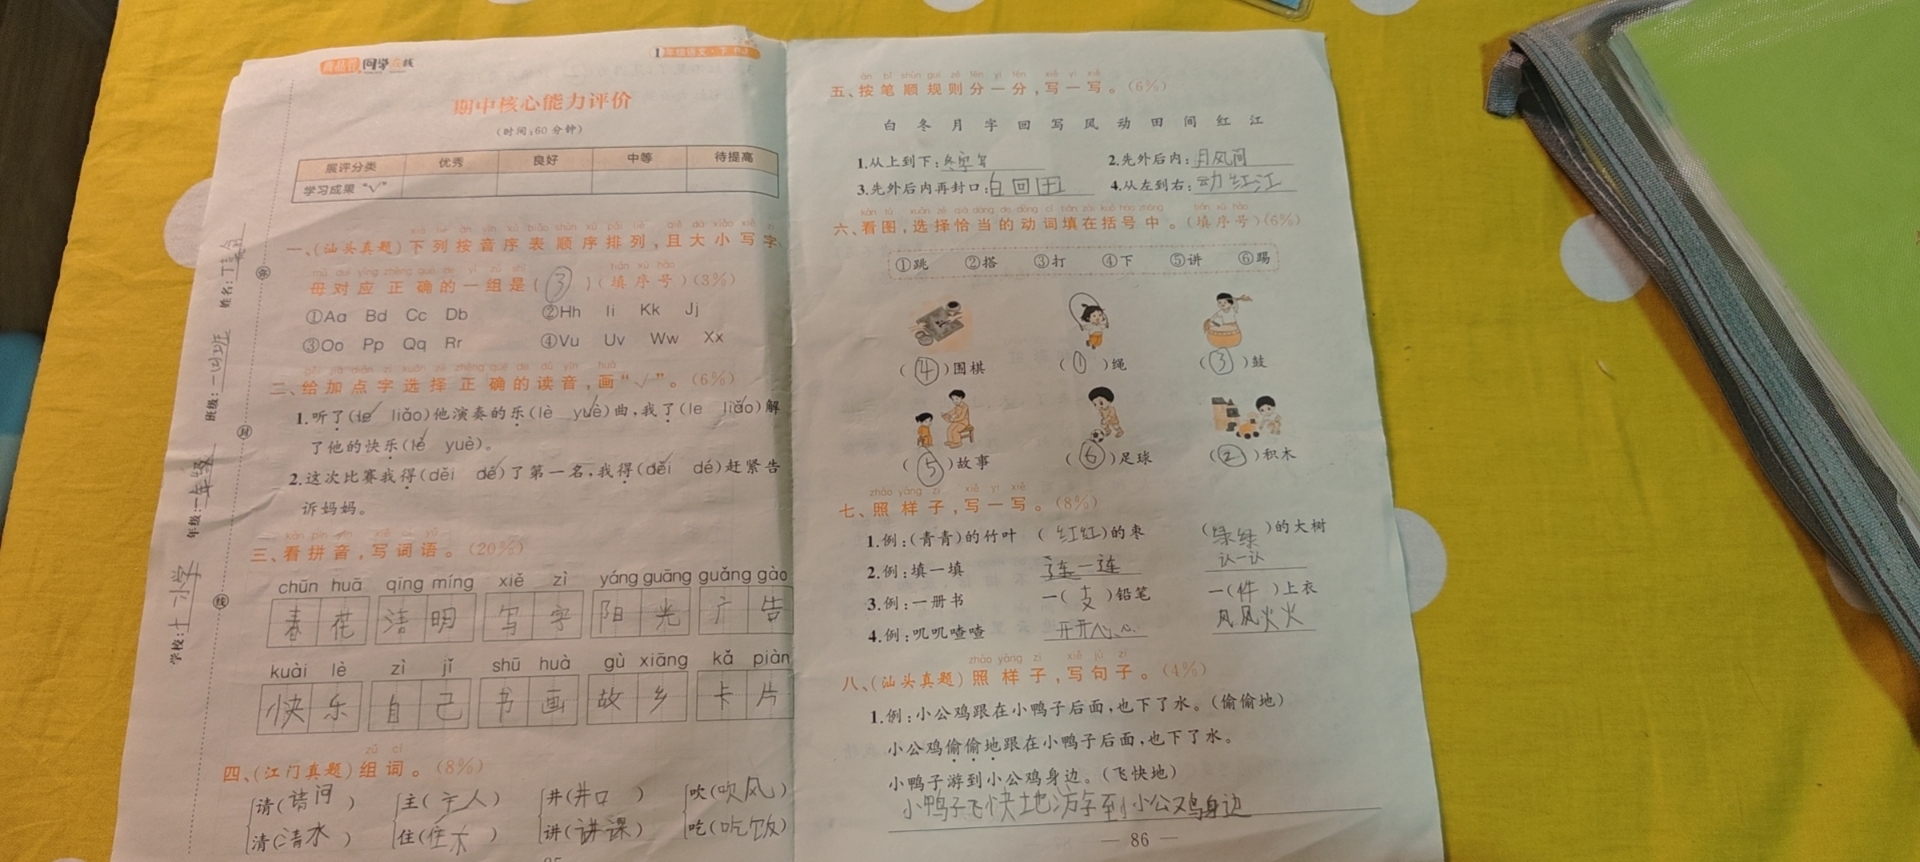 同学在线
1年级语文·下 RJ
期中核心能力评价
(时间:60分钟)
展评分类 优秀 良好 中等 待提高
学习成果“√”
一、(汕头真题)下列按音序表顺序排列,且大小写字
母对应正确的一组是( ③ )(填序号)(3%)
①Aa Bd Cc Db ②Hh Ii Kk Jj
③Oo Pp Qq Rr ④Vu Uv Ww Xx
二、给加点字选择正确的读音,画“√”。(6%)
1.听了(le liǎo)他演奏的乐(lè yuè)曲,我了(le liǎo)解
了他的快乐(lè yuè)。
2.这次比赛我得(děi dé)了第一名,我得(děi dé)赶紧告
诉妈妈。
kàn pīn yīn xiě cí yǔ
三、看拼音,写词语。(20%)
chūn huā qīng míng xiě zì yáng guāng guǎng gào
春花 清明 写字 阳光 广告
kuài lè zì jǐ shū huà gù xiāng kǎ piàn
快乐 自己 书画 故乡 卡片
zǔ cí
四、(江门真题)组词。(8%)
请(请问) 主(主人) 井(井口) 吹(吹风)
清(清水) 住(住) 讲(讲课) 吃(吃饭)
学校: 年级:一年级 班级: 姓名:
密 封 线
五、按笔顺规则分一分,写一写。(6%)
白 冬 月 字 回 写 风 动 田 间 红 江
1.从上到下:冬字写 2.先外后内:月风间
3.先外后内再封口:白回田 4.从左到右:动红江
六、看图,选择恰当的动词填在括号中。(填序号)(6%)
①跳 ②搭 ③打 ④下 ⑤讲 ⑥踢
(④)围棋 (①)绳 (③)鼓
(⑤)故事 (⑥)足球 (②)积木
zhào yàng zi xiě yi xiě
七、照样子,写一写。(8%)
1.例:(青青)的竹叶 (红红)的枣 (绿绿)的大树
2.例:填一填 连一连 认一认
3.例:一册书 一(支)铅笔 一(件)上衣
4.例:叽叽喳喳 开开心心 风风火火
zhào yàng zi xiě jù zi
八、(汕头真题)照样子,写句子。(4%)
1.例:小公鸡跟在小鸭子后面,也下了水。(偷偷地)
小公鸡偷偷地跟在小鸭子后面,也下了水。
小鸭子游到小公鸡身边。(飞快地)
小鸭子飞快地游到小公鸡身边
— 86 —